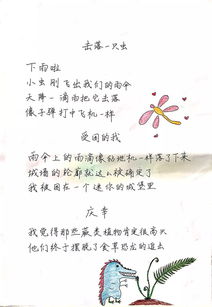 击落一只虫
下雨啦
小虫刚飞出我们的雨伞
天降一滴雨把它击落
像子弹打中飞机一样
受困的我
雨伞上的雨滴像钻地机一样落了下来
城墙的轮廓就这么被确定了
我被困在一个迷你的城堡里
庆幸
我觉得那些蕨类植物肯定很高兴
他们终于摆脱了食草恐龙的追击